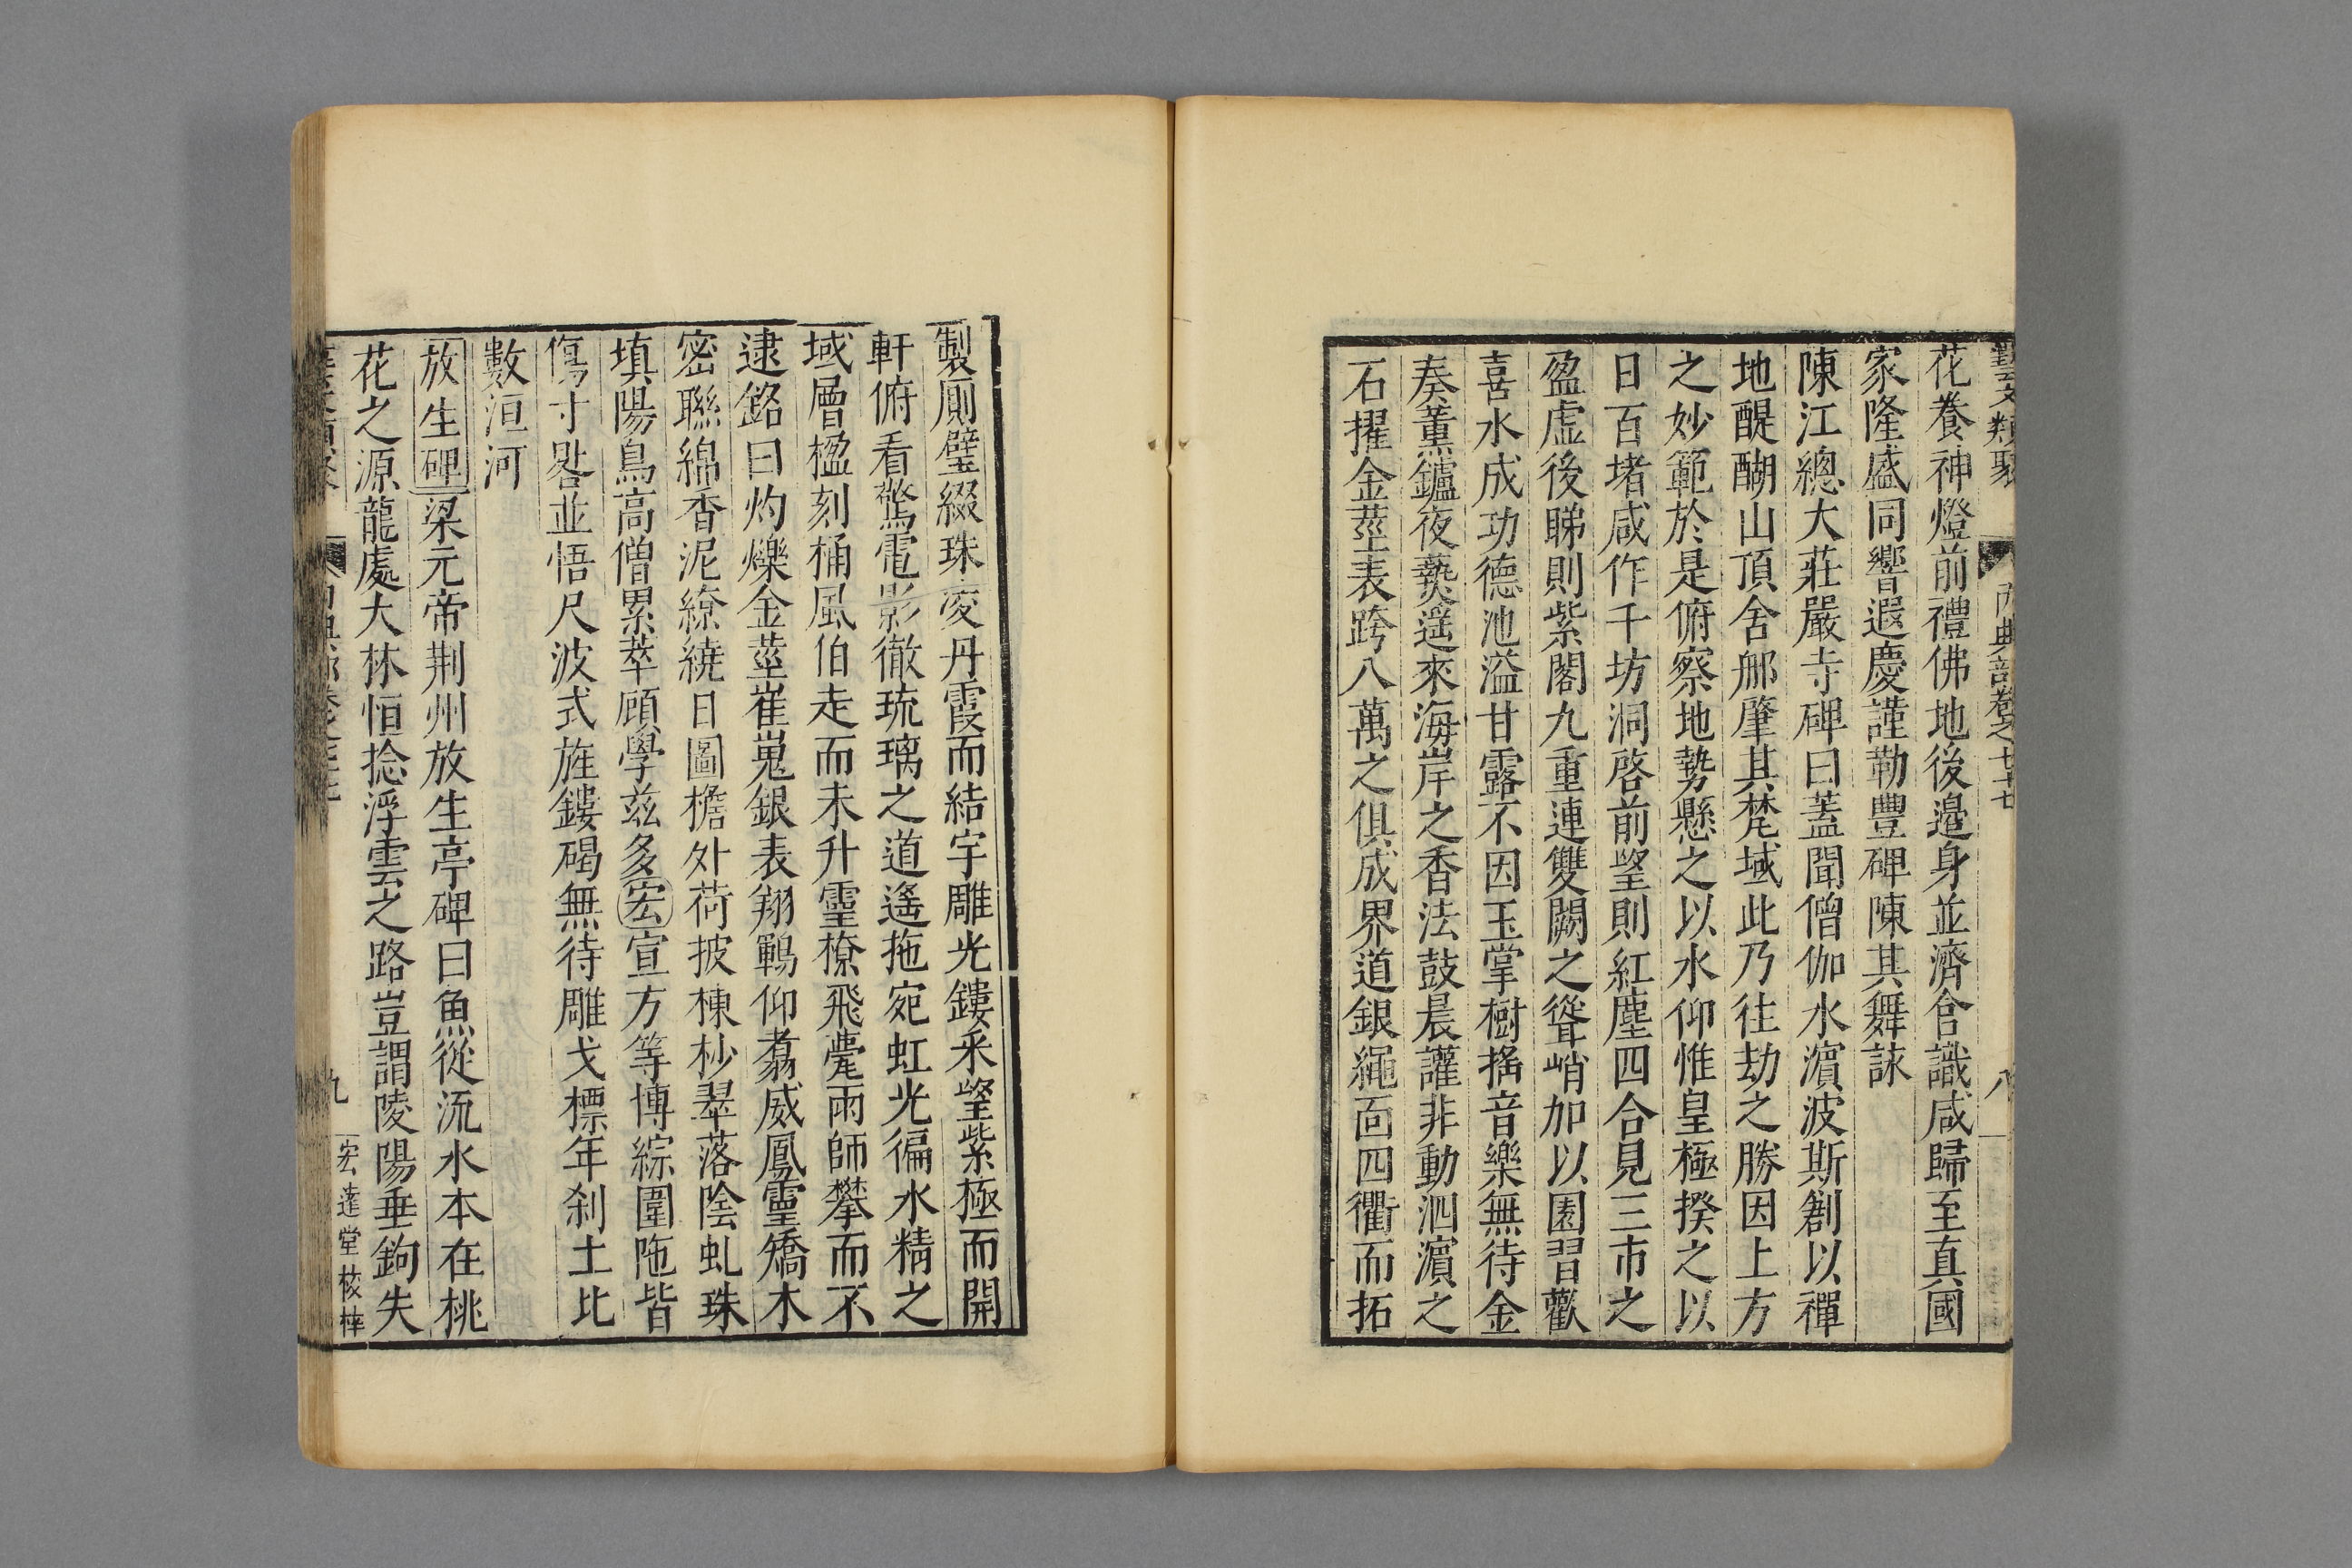 藝文類聚 內典部卷之七十七 八
花養神燈前禮佛地後邉身並濟含識咸歸至真國
家隆盛同響遐慶謹勒豐碑陳其舞詠
陳江總大莊嚴寺碑曰蓋聞僧伽水濵波斯創以禪
地醍醐山頂舍郍肇其梵域此乃往劫之勝因上方
之妙範於是俯察地勢懸之以水仰惟皇極揆之以
日百堵咸作千坊洞啓前望則紅塵四合見三市之
盈虚後睇則紫閣九重連雙闕之聳峭加以園習歡
喜水成功德池溢甘露不因玉掌樹搖音樂無待金
奏薰鑪夜爇遥來海岸之香法鼓晨讙非動泗濵之
石擢金莖表跨八萬之俱成界道銀繩靣四衢而拓
製厠璧綴珠凌丹霞而結宇雕光鏤采望紫極而開
軒俯看驚電影徹琉璃之道遙拖宛虹光徧水精之
域層楹刻桷風伯走而未升靈橑飛甍雨師攀而不
逮銘曰灼爍金莖崔嵬銀表翔鶤仰翥威鳳靈矯木
密聯綿香泥繚繞日圖檐外荷披棟杪翠落陰虬珠
填陽鳥高僧累萃顧學玆多宏宣方等博綜圍陁皆
傷寸晷並悟尺波式旌鏤碣無待雕戈標年刹土比
數洹河
放生碑梁元帝荆州放生亭碑曰魚從流水本在桃
花之源龍處大林恒捻浮雲之路豈謂陵陽垂鉤失
九 宏達堂校梓